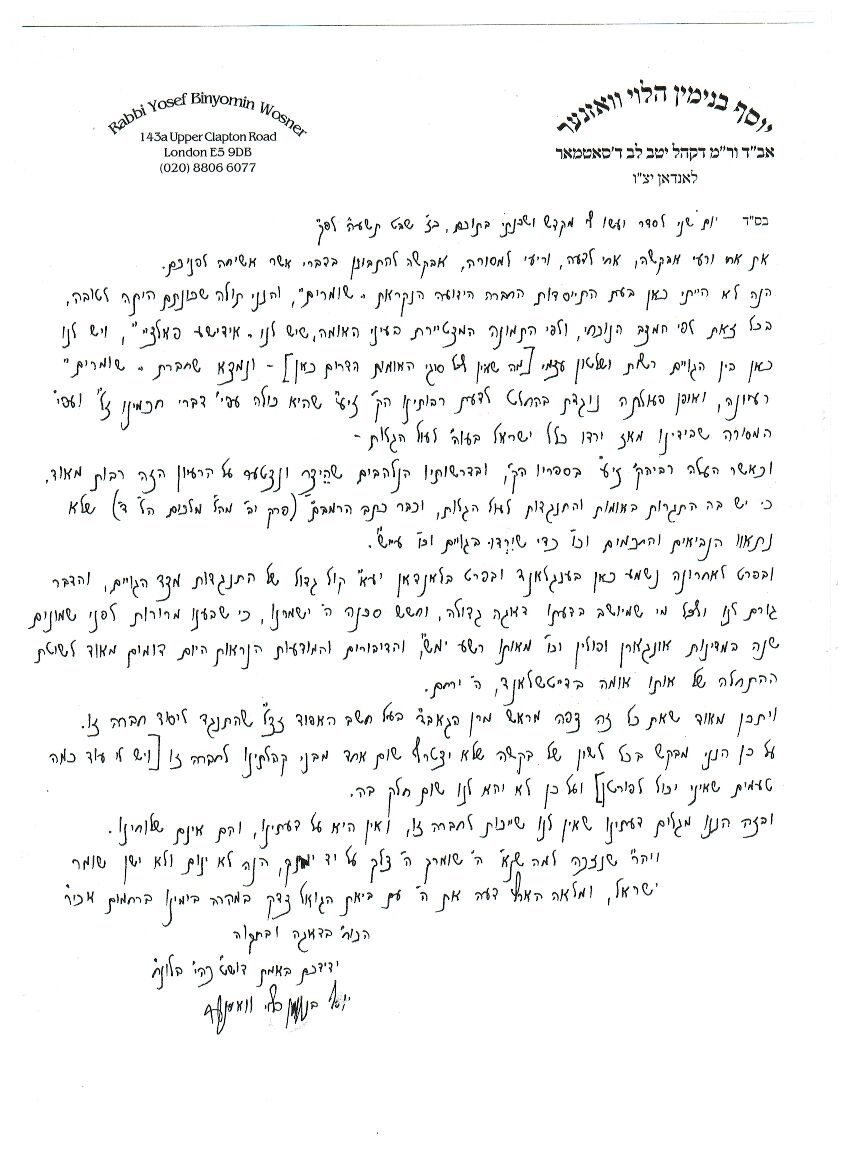 Rabbi Yosef Binyomin Wosner
143a Upper Clapton Road
London E5 9DB
(020) 8806 6077
יוסף בנימין הלוי וואזנער
אב"ד ור"מ דקהל יטב לב ד'סאטמאר
לאנדאן יצ"ו
בס"ד יום שני לסדר ועשו לי מקדש ושכנתי בתוכם, כז' שבט תשע"ה לפ"ק
את אחי ורעי אבקשה, אחי לדעה, וריעי למסורה, אבקשה להתבונן בדברי אשר אשיחה לפניכם.
הנה לא הייתי כאן בעת התייסדות החברה הידועה הנקראת "שומרים", והנני תולה שכוונתם היתה לטובה,
בכל זאת לפי המצב הנוכחי, ולפי התמונה המצטיירת בעיני האומה, שיש לנו "אידישע פאליציי", ויש לנו
כאן בין הגויים רשות ושלטון עצמי [מה שאין לכל סוגי האומות הדרים כאן] - ונמצא שחברת "שומרים"
רעיונה, ואופן פעולתה נוגדת בהחלט לדעת רבותינו הק' זי"ע שהיא כולה עפ"י דברי חכמינו ז"ל ועפ"י
המסורה שבידינו מאז ירדו כלל ישראל בעוה"ר לעול הגלות -
וכאשר העלה רביה"ק זי"ע בספריו הק', ובדרשותיו הנלהבים שהיצר ונצטער על הרעיון הזה רבות מאוד,
כי יש בה התגרות באומות והתנגדות לעול הגלות, וכבר כתב הרמב"ם (פרק יב' מהל' מלכים הל' ד') שלא
נתאוו הנביאים והחכמים וכו' כדי שירדו בגויים וכו' עיי"ש.
ובפרט לאחרונה נשמע כאן בענגלאנד ובפרט בלאנדאן יע"א קול גדול של התנגדות מצד הגויים, והדבר
גורם לנו ולכל מי שמיושב בדעתו דאגה גדולה, וחשש סכנה ה' ישמרנו, כי שבענו מרורות לפני שמונים
שנה במדינות אונגארן ופולין וכו' מאותו רשע ימ"ש, והדיבורים והמודעות הנראות היום דומים מאוד לשיטת
ההתחלה של אותו אומה בדייטשלאנד, ה' ירחם.
ויתכן מאוד שאת כל זה צפה מראש מרן הגאב"ד בעל חשב האפוד זצ"ל שהתנגד ליסוד חברה זו.
על כן הנני מבקש בכל לשון של בקשה שלא יצטרף שום אחד מבני קהלתינו לחברה זו [ויש לי עוד כמה
טעמים שאיני יכול לפורטן] ועל כן לא יהא לנו שום חלק בה.
ובזה הננו מגלים דעתינו שאין לנו שייכות לחברה זו, ואין היא על דעתינו, והם אינם שלוחינו.
ויה"ר שנזכה למה שנא' ה' שומרך ה' צלך על יד ימינך, הנה לא ינום ולא ישן שומר
ישראל, ומלאה הארץ דעה את ה' עם ביאת הגואל צדק במהרה בימינו ברחמים אכי"ר
הכו"ח בדאגה ובתקוה
ידידכם באמת דושט"כ
יוסף בנימין הלוי וואזנער